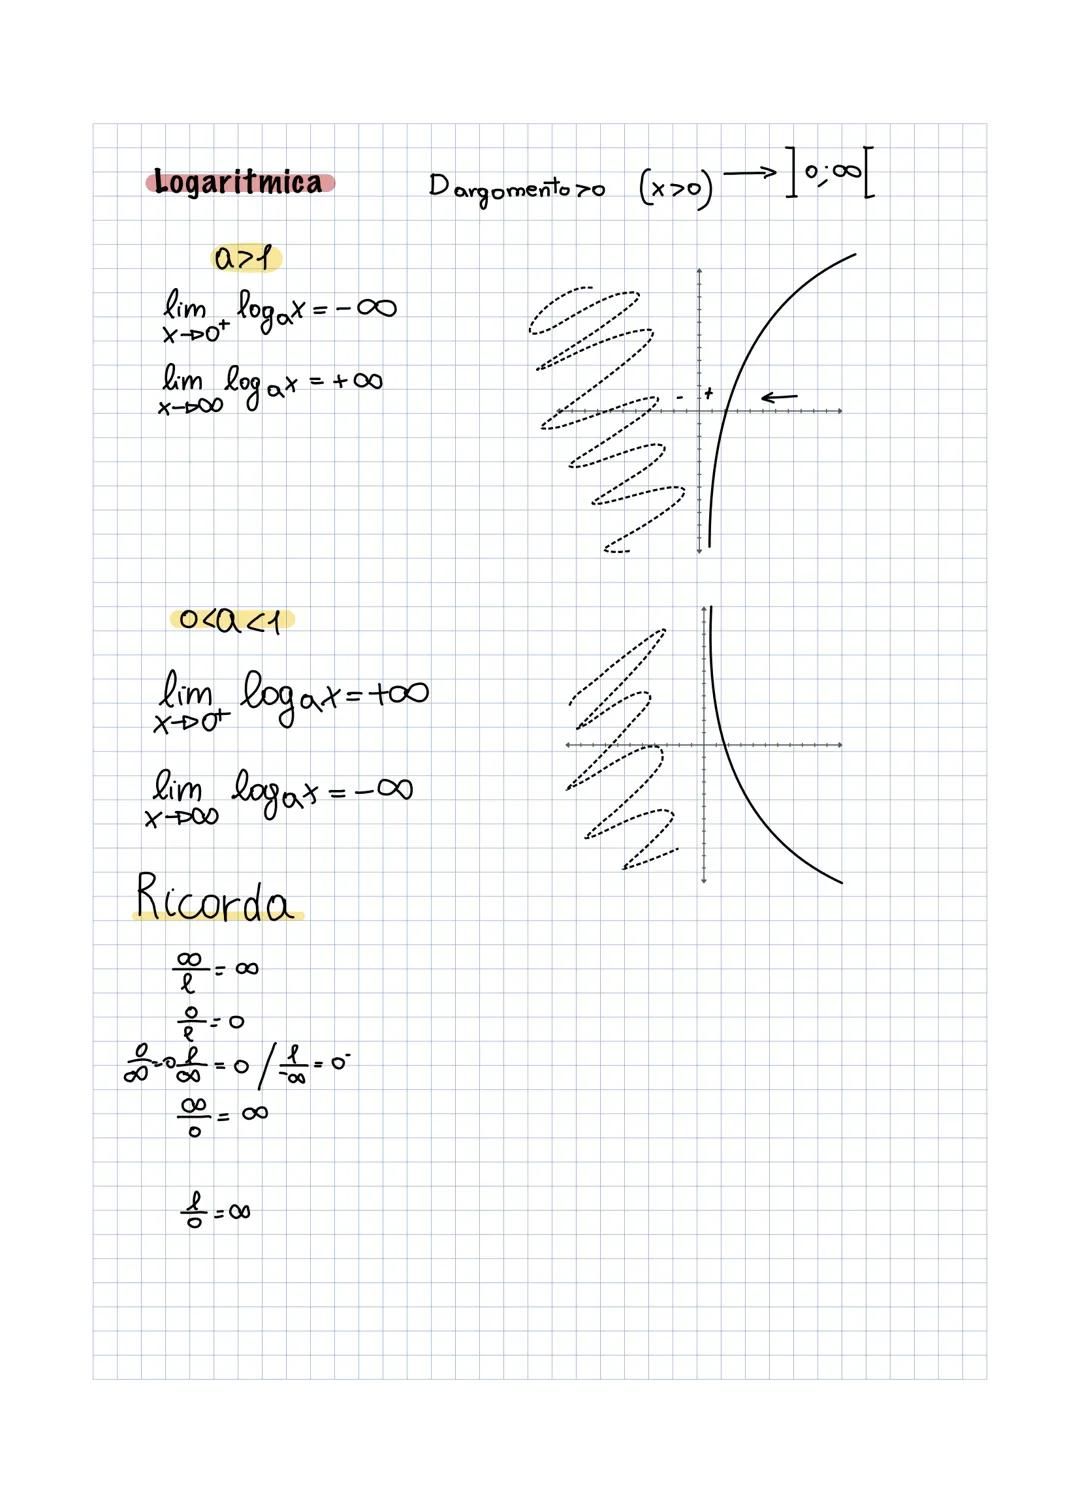 Logaritmica D argomento>0 (x>0) → ]0;∞[
a>1
lim logₐx = -∞
x→0⁺
lim logₐx = +∞
x→∞
- +
0<a<1
lim logₐx = +∞
x→0⁺
lim logₐx = -∞
x→∞
Ricorda
∞/ℓ = ∞
0/ℓ = 0
0/∞ = 0 ℓ/∞ = 0 / ℓ/-∞ = 0⁻
∞/0 = ∞
ℓ/0 = ∞